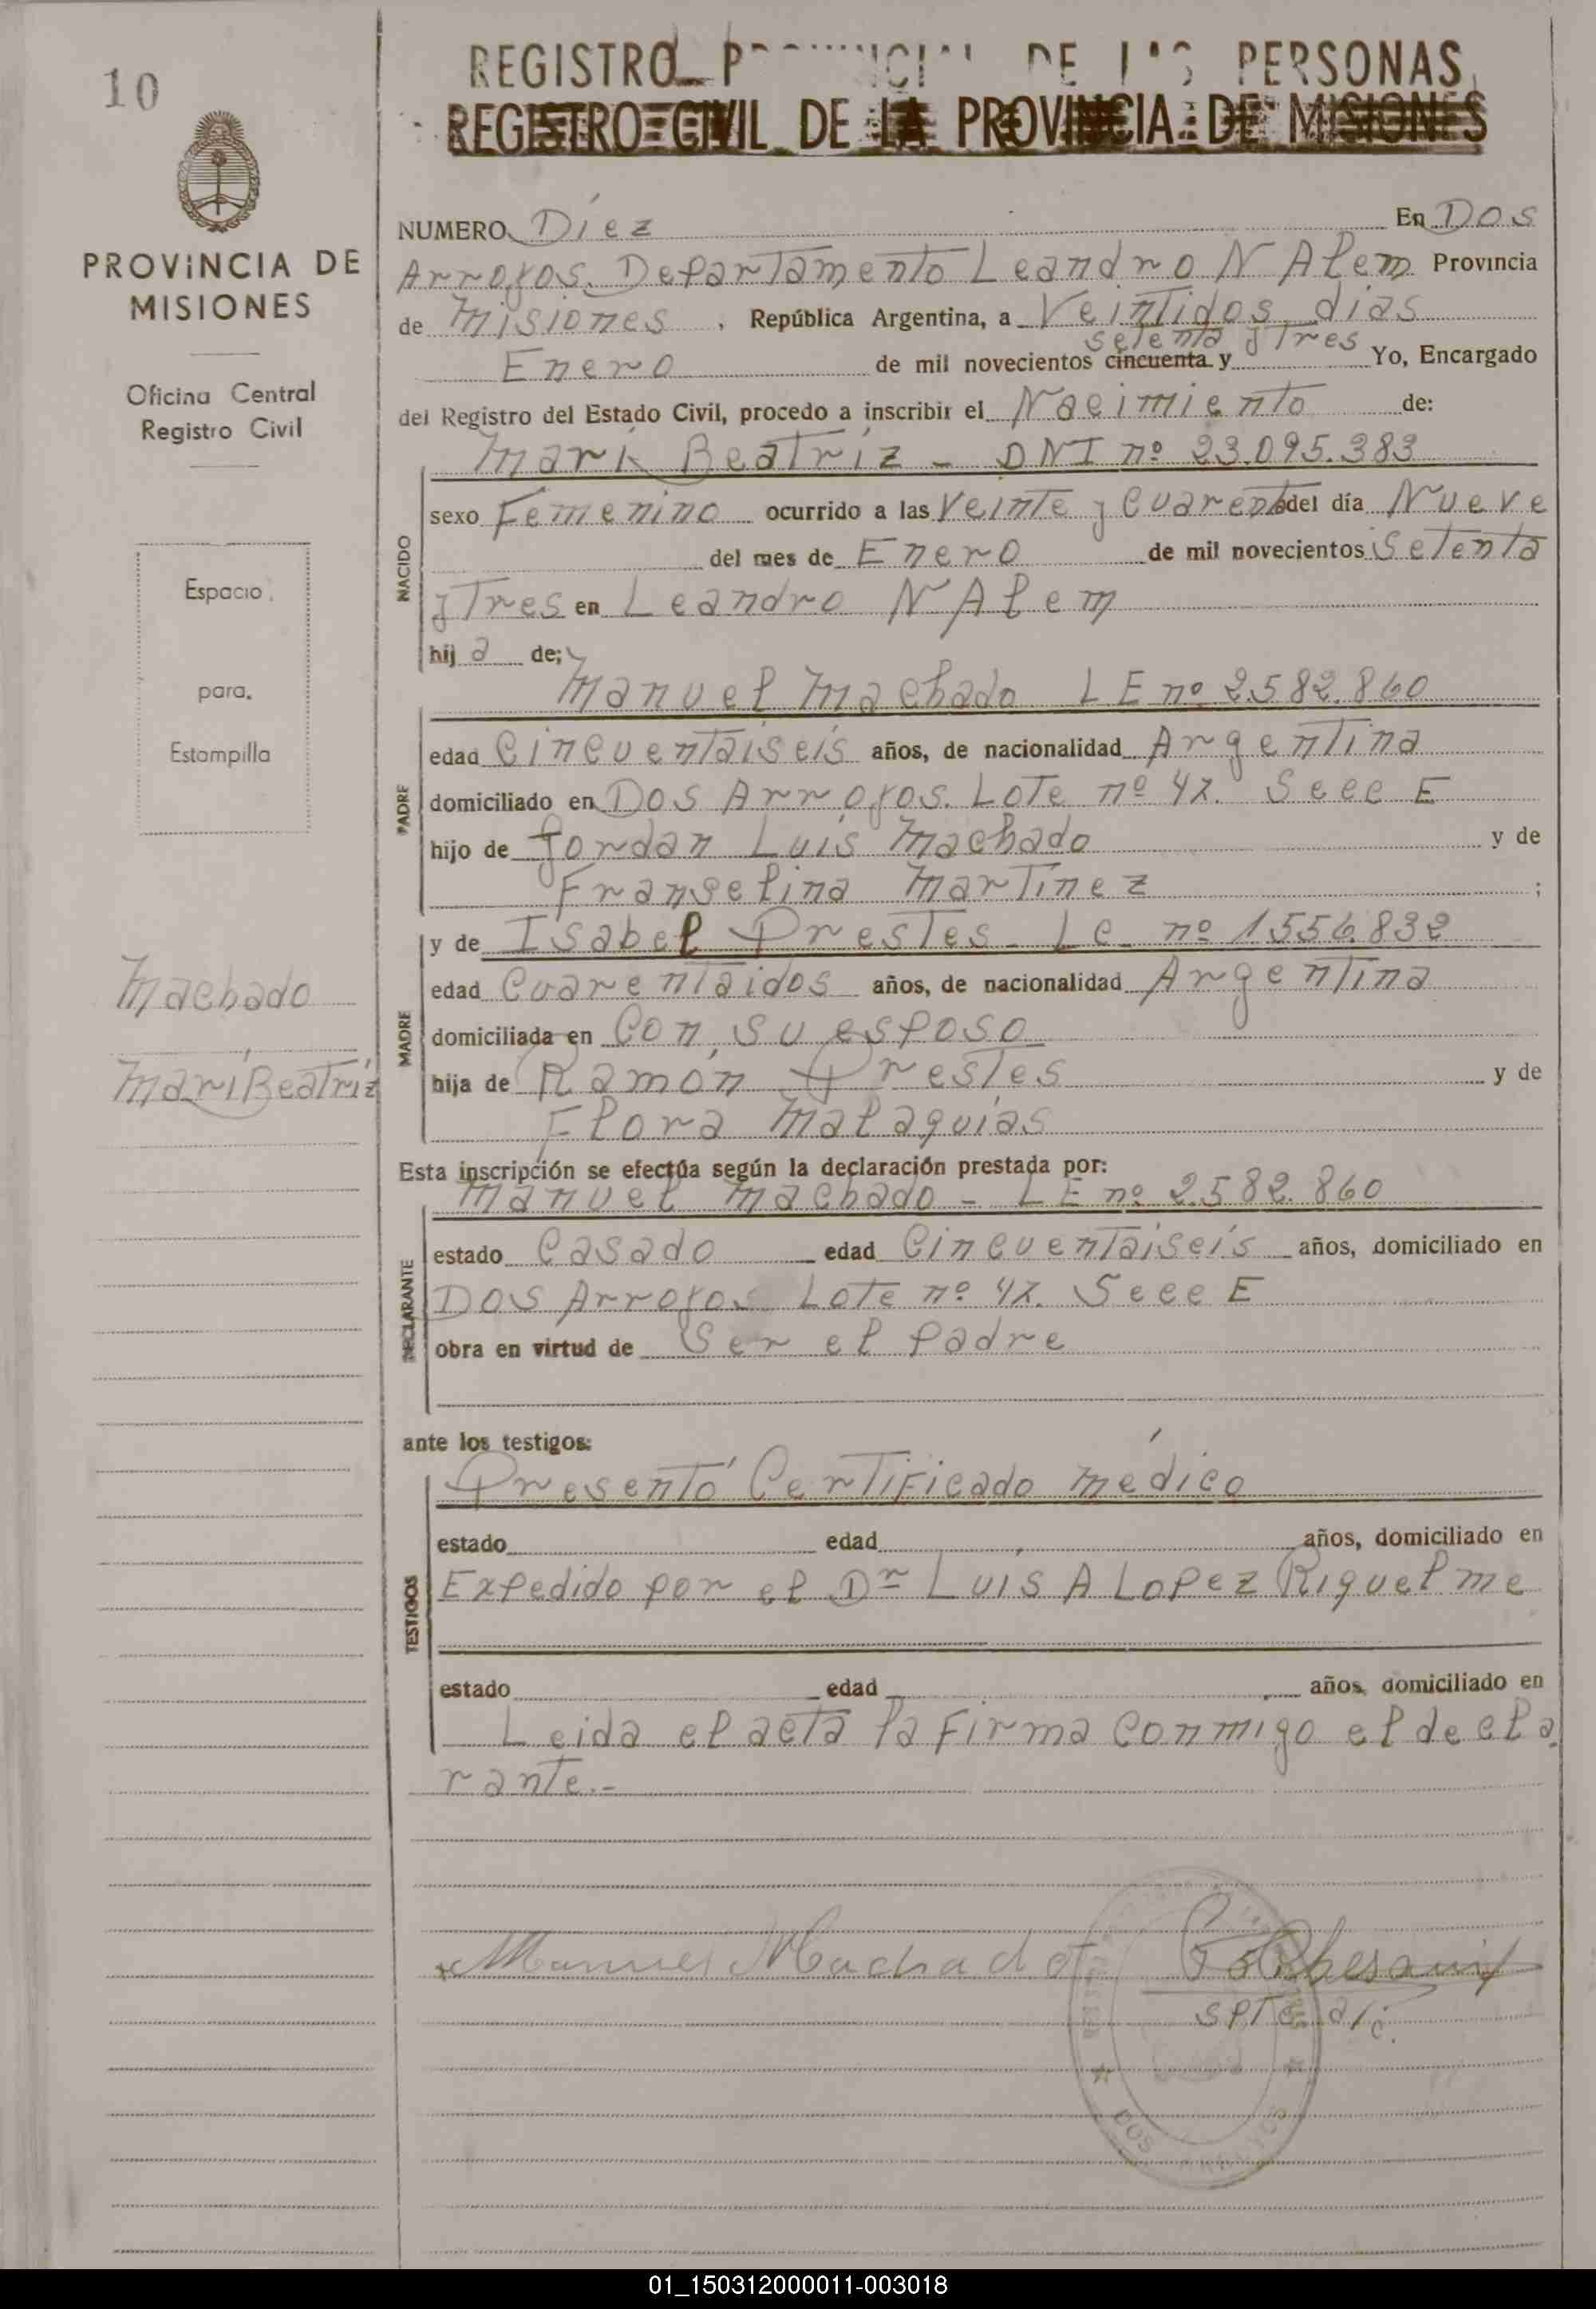 10
PROVINCIA DE
MISIONES
Oficina Central
Registro Civil
Espacio
para.
Estampilla
Machado
Marí Beatríz
REGISTRO DE PERSONAS
REGISTRO CIVIL DE LA PROVINCIA DE MISIONES
NUMERO Díez En Dos
Arroyos. Departamento Leandro N Alem Provincia
de Misiones, República Argentina, a Veintidos días
setenta y Tres
Enero de mil novecientos cincuenta y Yo, Encargado
del Registro del Estado Civil, procedo a inscribir el Nacimiento de:
Marí Beatríz - DNI nº 23.095.383
NACIDO
sexo Femenino ocurrido a las Veinte y Cuarenta del día Nueve
del mes de Enero de mil novecientos Setenta
y Tres en Leandro N Alem
hij a de;
Manuel Machado LE nº 2.582.860
PADRE
edad Cincuentaiseis años, de nacionalidad Argentina
domiciliado en Dos Arroyos. Lote nº 42. Secc E
hijo de Jordan Luis Machado y de
Franselina Martínez ;
y de Isabel Prestes - Lc nº 1.556.832
MADRE
edad Cuarentaidos años, de nacionalidad Argentina
domiciliada en Con su esposo
hija de Ramón Prestes y de
Flora Malaquías
Esta inscripción se efectúa según la declaración prestada por:
Manuel Machado - LE nº 2.582.860
DECLARANTE
estado Casado edad Cincuentaiseis años, domiciliado en
Dos Arroyos Lote nº 42. Secc E
obra en virtud de Ser el padre
ante los testigos:
Presentó Certificado médico
TESTIGOS
estado edad años, domiciliado en
Expedido por el Dr Luis A Lopez Riquelme
estado edad años, domiciliado en
Leida el acta la firma conmigo el decla
rante.-
Manuel Machado
SPTE a/c.
DOS ARROYOS
01_150312000011-003018